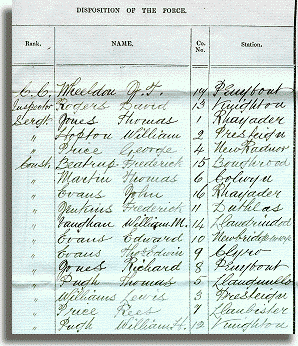 DISPOSITION OF THE FORCE.
Rank. NAME. Co. No. Station.
C.C. Wheeldon 19 Penybont
Inspector Rogers David 13 Knighton
Sergt Jones Thomas 1 Rhayader
" Hopton William 2 Presteign
" Price George 4 New Radnor
Const. Beatrup Frederick 15 Boughrood
" Martin Thomas 6 Colwyn
" Evans John 16 Rhayader
" Jenkins Frederick 11
" Vaughan William M. 14 Llandrindod
" Evans Edward 10
" Evans 9 Clyro
" Jones Richard 8 Penybont
" Pugh Thomas 5
" Williams Lewis 3 Presteign
" Price Rees 7
" Pugh William H. 12 Knighton